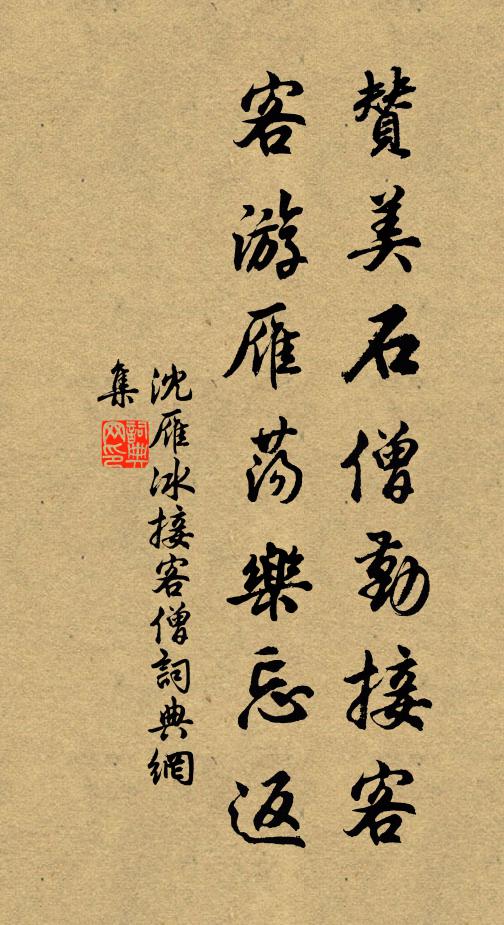 贊美石僧勤接客
客游雁荡樂忘返
沈雁冰接客僧詞典網
集
詞典
網印